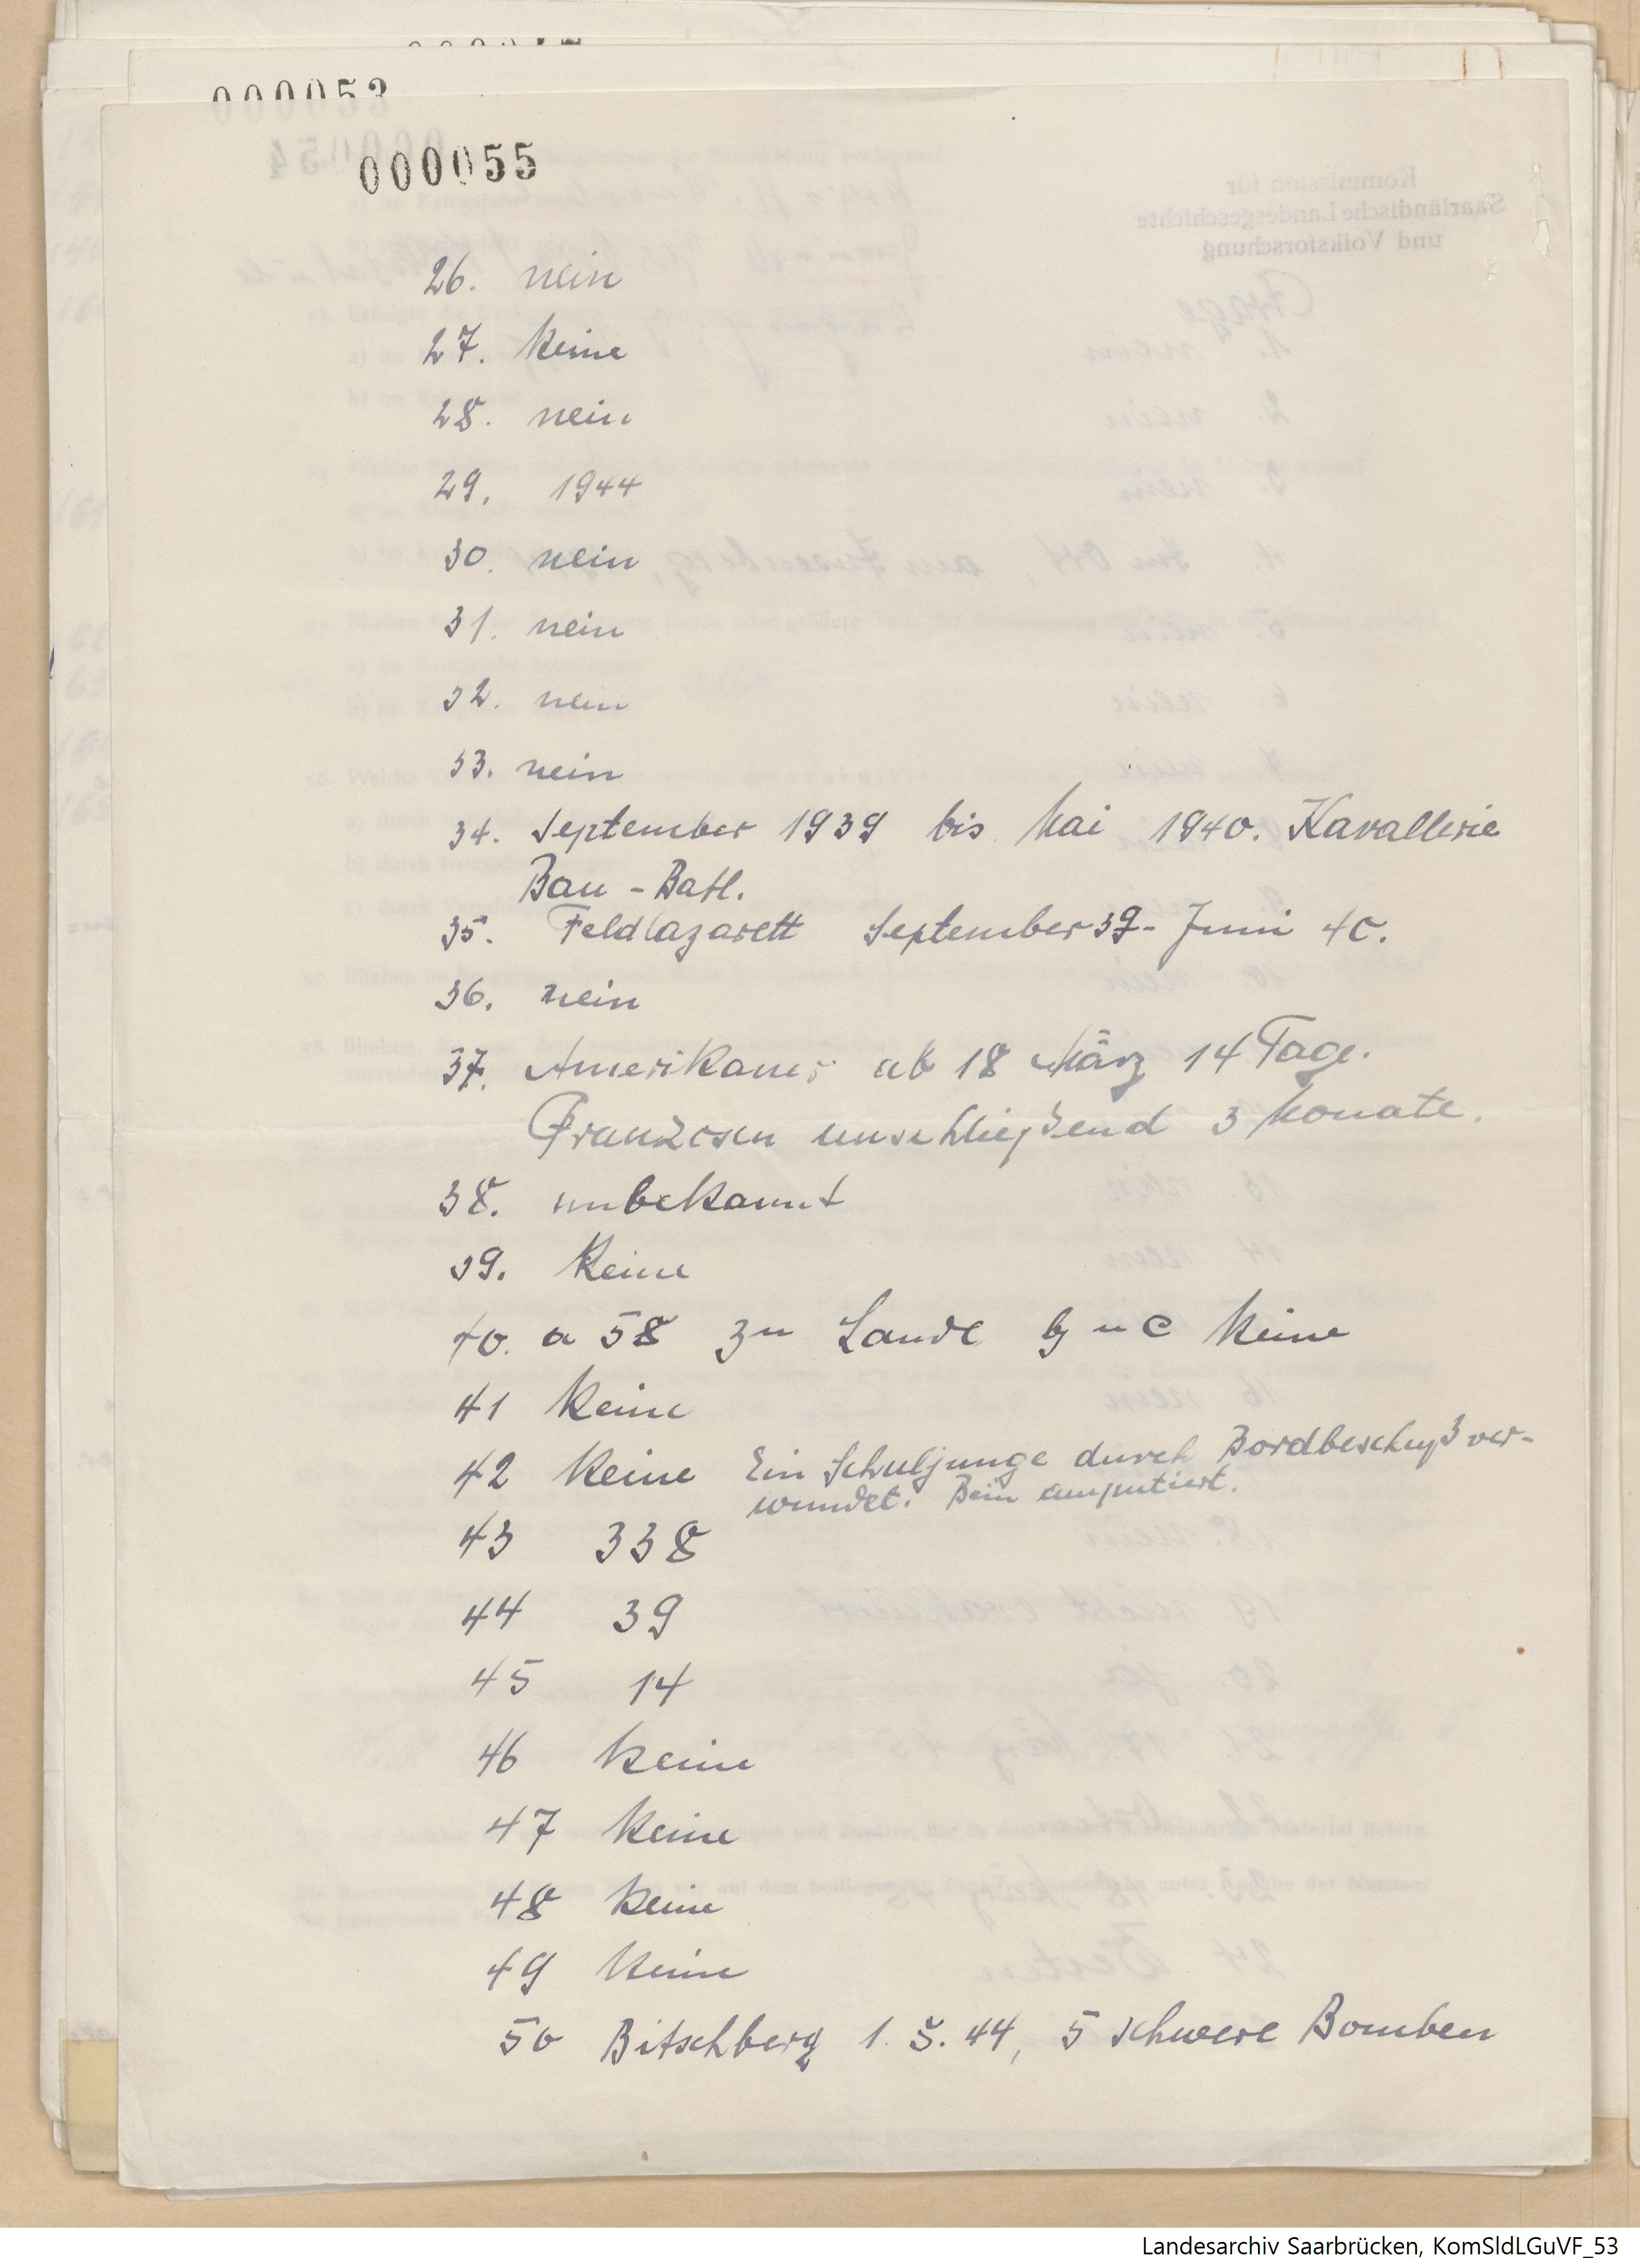 000053
000055
26. nein
27. keine
28. nein
29. 1944
30. nein
31. nein
32. nein
33. nein
34. September 1939 bis Mai 1940. Kavallerie
Bau-Batl.
35. Feldlazarett September 39 - Juni 40.
36. nein
37. Amerikaner ab 18 März 14 Tage.
Franzosen anschließend 3 Monate.
38. unbekannt
39. keine
40. a 58 zu Lande b u c keine
41 keine
42 keine Ein Schuljunge durch Bordbeschuß ver-
wundet. Bein amputiert.
43 338
44 39
45 14
46 keine
47 keine
48 keine
49 keine
50 Bitschberg 1. 5. 44, 5 schwere Bomben
Landesarchiv Saarbrücken, KomSldLGuVF_53